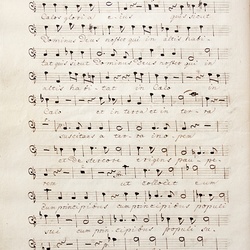 Calos gloria e ius quis sicut
Dominus Deus noster qui in altis habi
tat quis sicut Dominus Deus noster qui in
altis habi tat in Calo in
Calo et in terra et in ter ra
suscitans a terra ino pem
et de stercore erigens pau pe
rem ut collocet eum
cum principibus cum principibus populi
sui cum principibus populi su